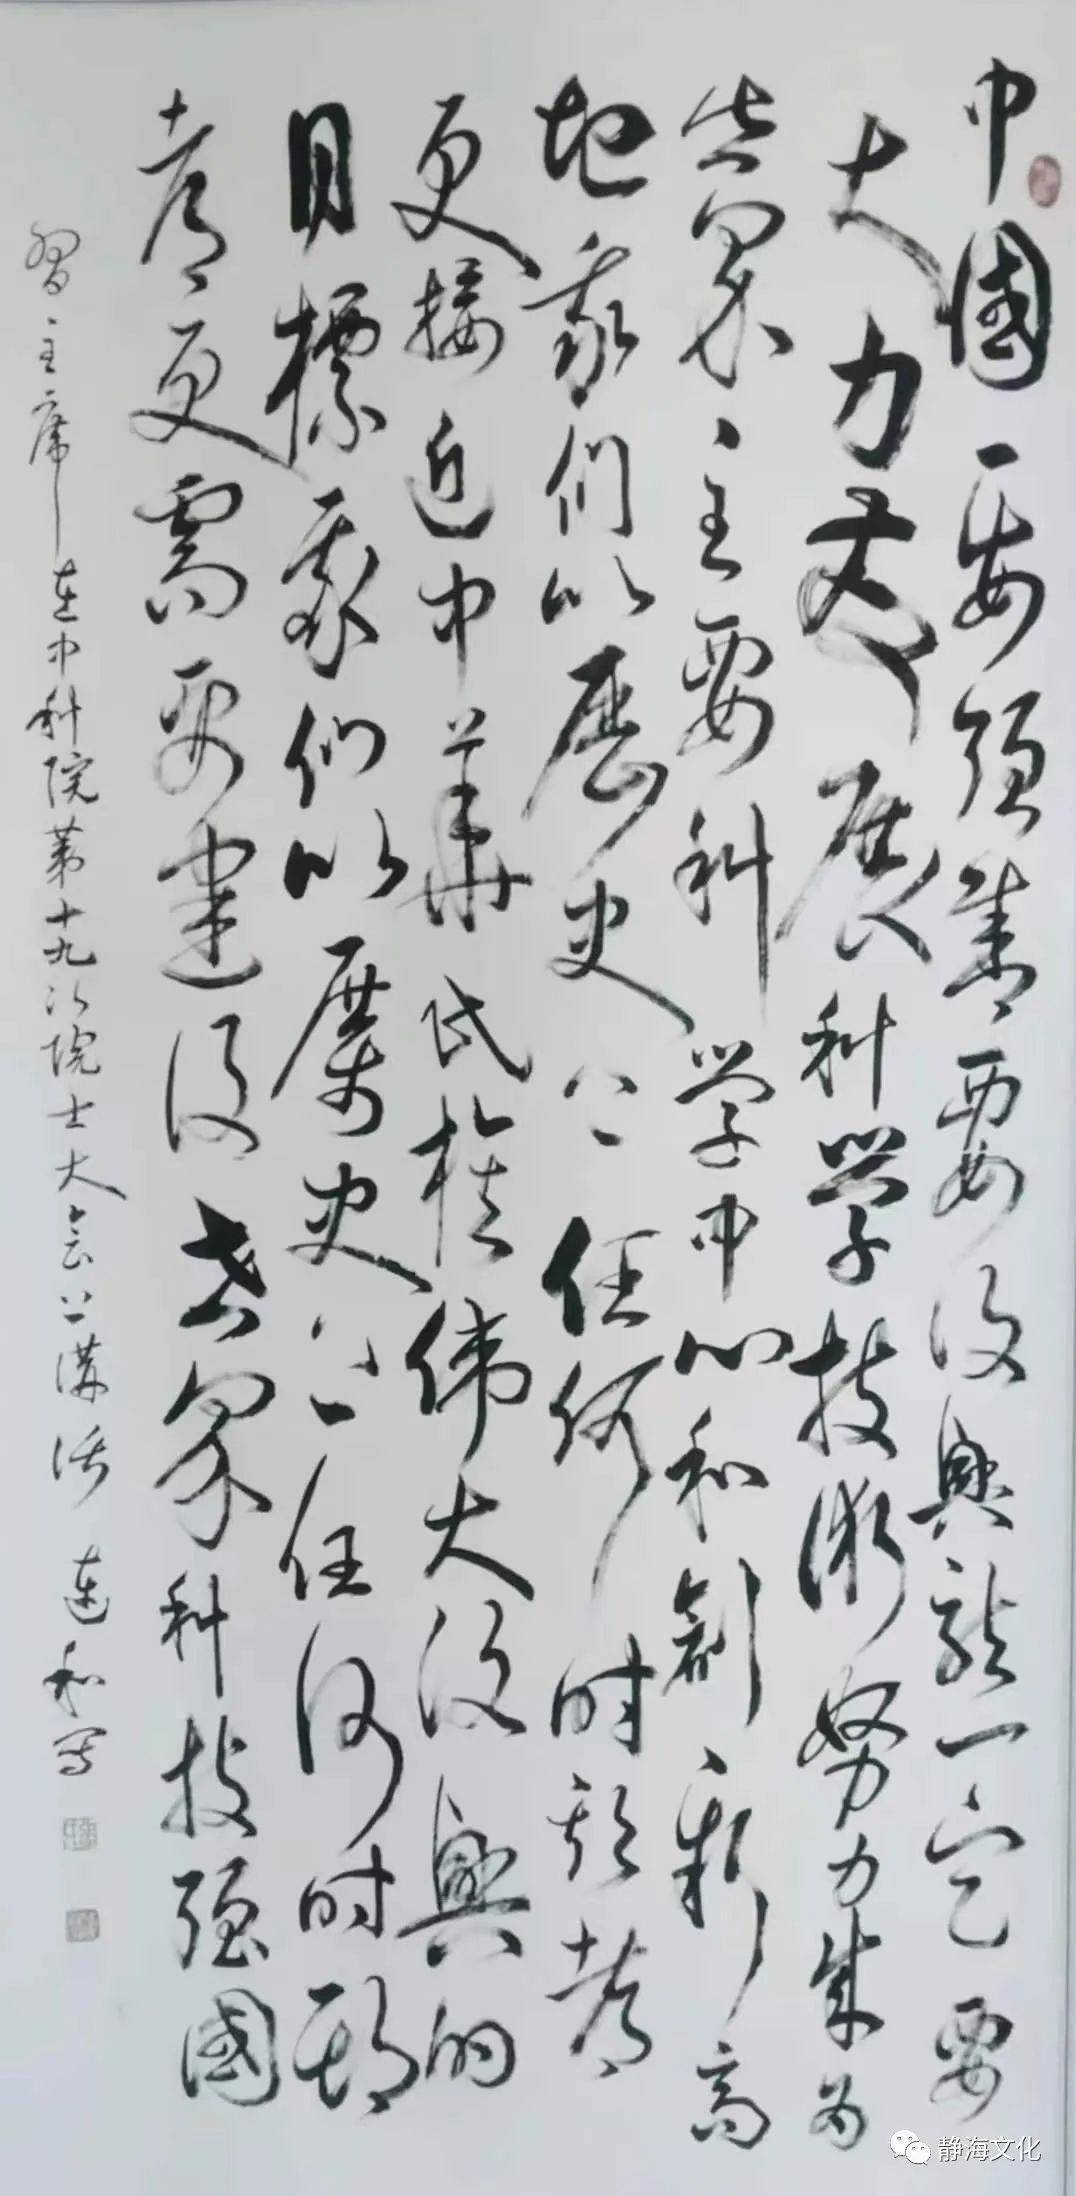 中國要强盛要復興就一定要
大力发展科学技術努力成为
世界主要科学中心和創新高
地我们比歷史上任何时期都
更接近中華民族伟大復興的
目標我们比歷史上任何时期
都更需要建设世界科技强國
習主席在中科院第十九次院士大会上講话 連和写
静海文化